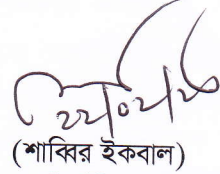 (শাব্বির ইকবাল)